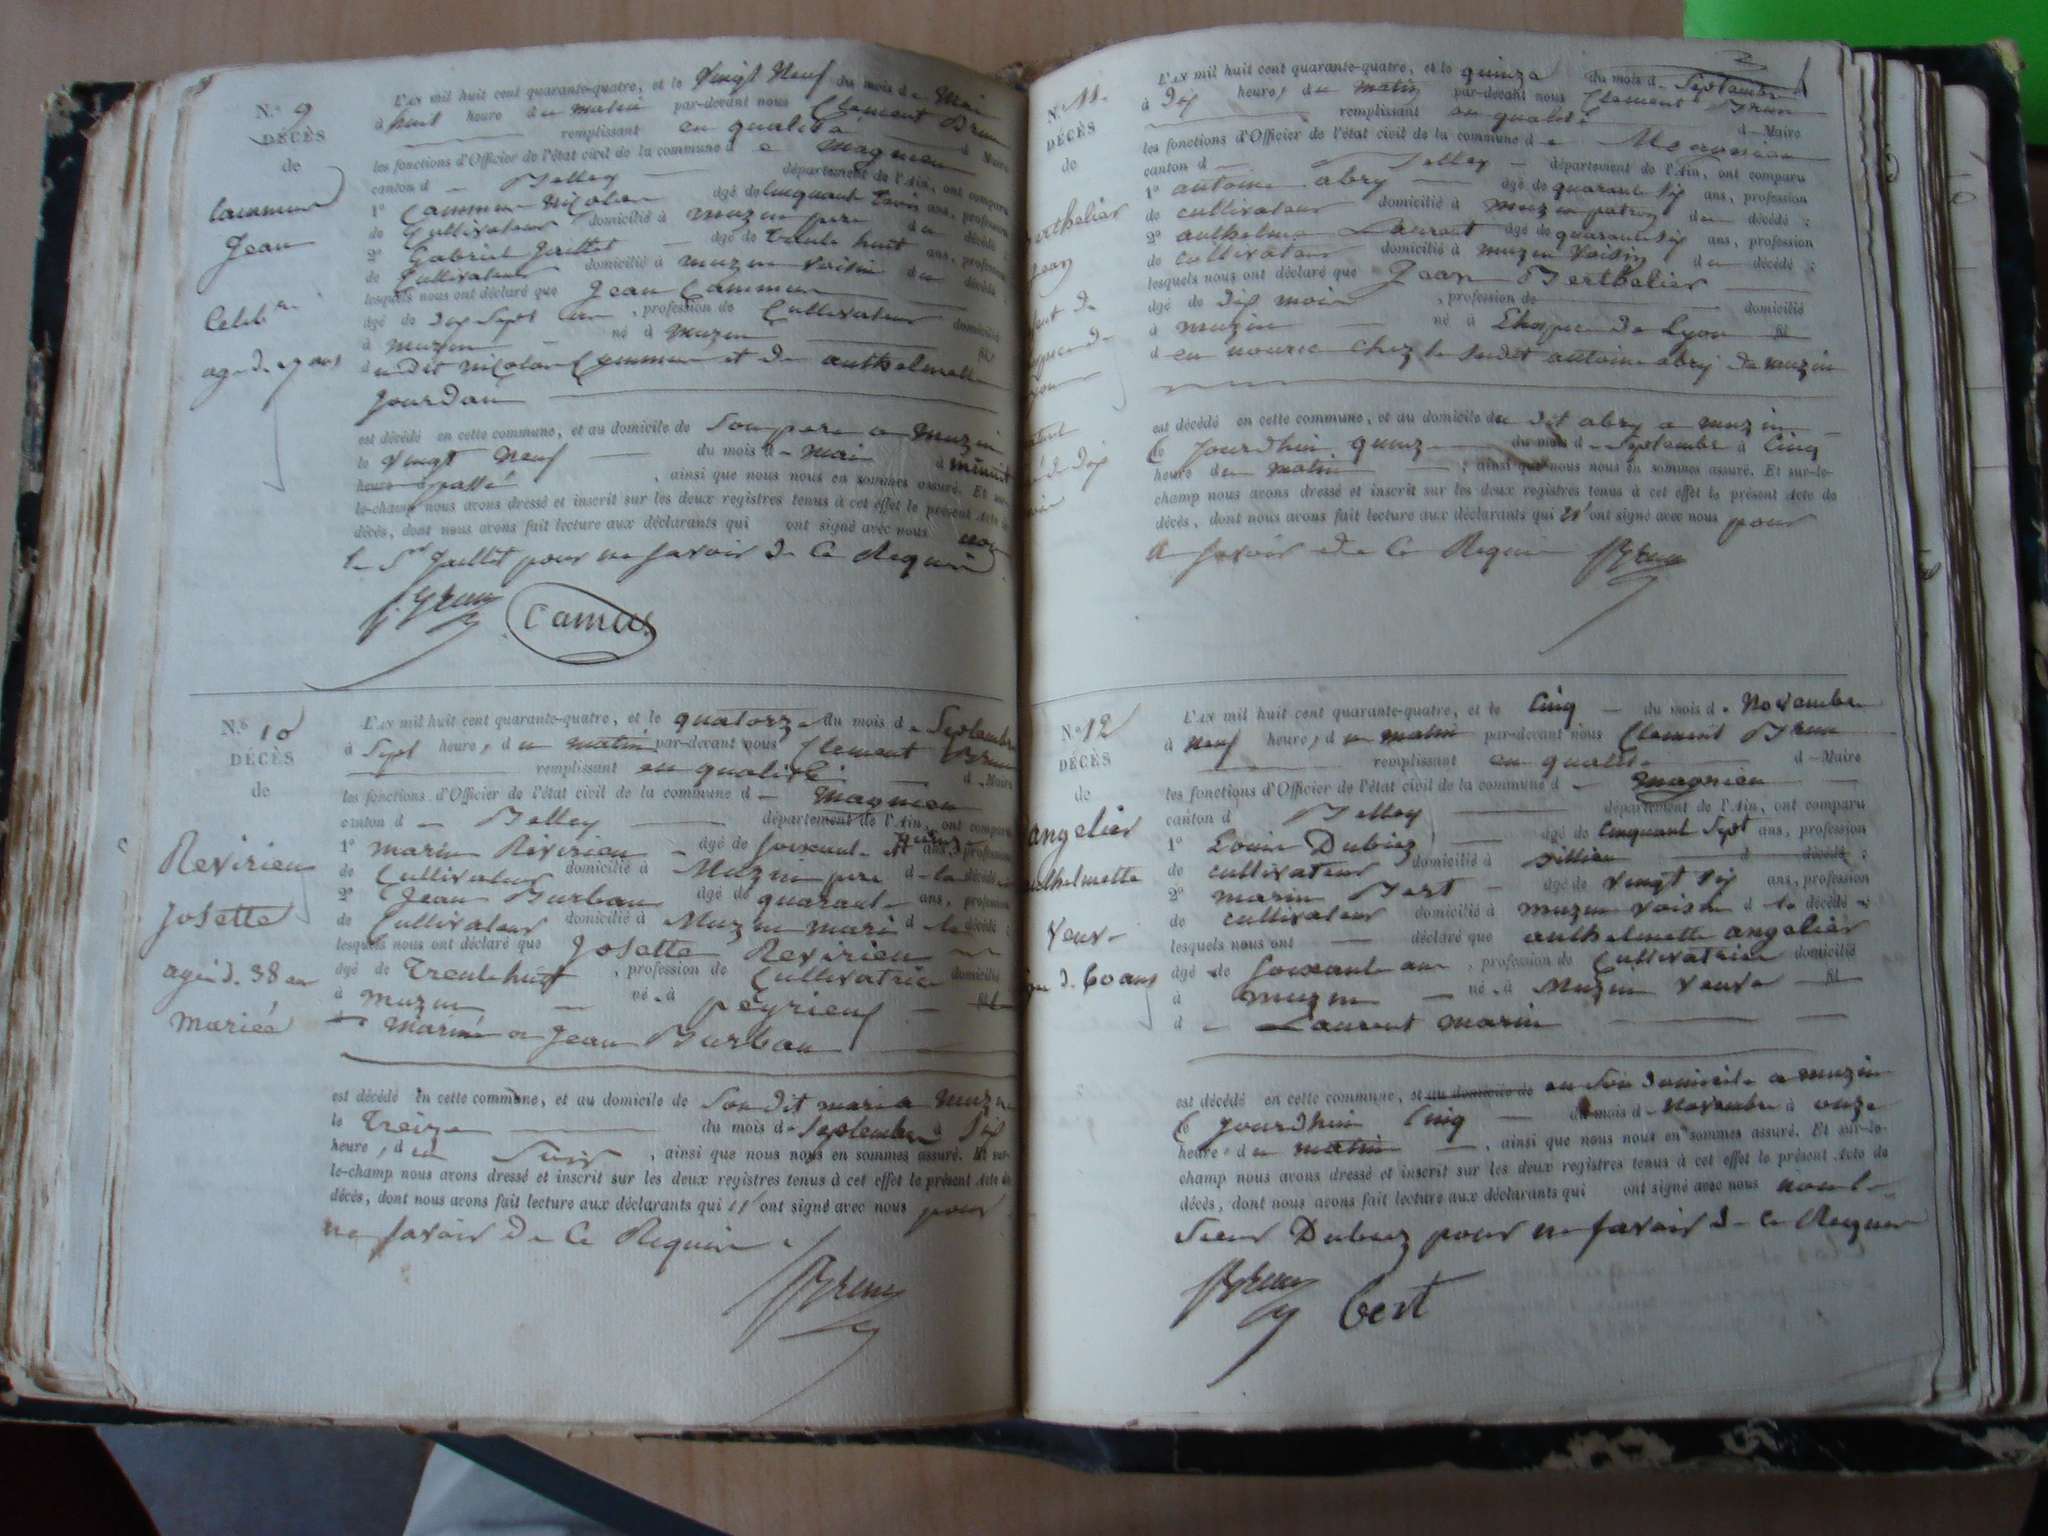 N.º 9
DÉCÈS
de
Jean
Celib.re
agé d. 17 ans
L'AN mil huit cent quarante-quatre, et le Vingt Neuf du mois de Mai
à huit heure du matin par-devant nous Clément Brun
remplissant en qualité d Maire
les fonctions d'Officier de l'état civil de la commune d e Magnieu
canton d Belley département de l'Ain, ont comparu
1º Nicolas âgé de Cinquante trois ans, profession
de Cultivateur domicilié à Muzin pere du décédé :
2º Gabriel âgé de trente huit ans, profession
de Cultivateur domicilié à Muzin Voisin du décédé ;
lesquels nous ont déclaré que Jean
âgé de dix Sept ans, profession de Cultivateur domicilié
à Muzin né à Muzin fil
du dit Nicolas et de anthelmette
Jourdan
est décédé en cette commune, et au domicile de Son pere a Muzin
le Vingt Neuf du mois d Mai à minuit
heure passé, ainsi que nous nous en sommes assuré. Et sur-
le-champ nous avons dressé et inscrit sur les deux registres tenus à cet effet le présent Acte de
décès, dont nous avons fait lecture aux déclarants qui ont signé avec nous non
le Sr pour ne Savoir de Ce Requis
Brun Camus
N.º 10
DÉCÈS
de
Revirieu
Josette
agée d. 38 an
Mariée
L'AN mil huit cent quarante-quatre, et le quatorze du mois d Septembre
à Sept heure, du matin par-devant nous Clement Brun
remplissant en qualité d Maire
les fonctions d'Officier de l'état civil de la commune d Magnieu
canton d Belley département de l'Ain, ont comparu
1º marin Revirieu âgé de Soixante ans, profession
de Cultivateur domicilié à Muzin pere d la décédé
2º Jean Burbau âgé de quarante ans, profession
de Cultivateur domicilié à Muzin mari d la décédé ;
lesquels nous ont déclaré que Josette Revirieu
âgé de Trente huit, profession de Cultivatrice domicilié
à Muzin né à peyrieu fil
Marieé a Jean Burbau
est décédé en cette commune, et au domicile de Son dit mari a Muzin
le Treize du mois d Septembre à dix
heure, du Soir, ainsi que nous nous en sommes assuré. Et sur-
le-champ nous avons dressé et inscrit sur les deux registres tenus à cet effet le présent Acte de
décès, dont nous avons fait lecture aux déclarants qui n'ont signé avec nous pour
ne Savoir de Ce Requis
Brun
N.º 11
DÉCÈS
de
L'AN mil huit cent quarante-quatre, et le quinze du mois d Septembre
à Dix heure, du matin par-devant nous Clement Brun
remplissant en qualité d Maire
les fonctions d'Officier de l'état civil de la commune d e Magnieu
canton d Belley département de l'Ain, ont comparu
1º antoine abry âgé de quarante dix ans, profession
de cultivateur domicilié à Muzin du décédé :
2º anthelme Laurent âgé de quarante dix ans, profession
de cultivateur domicilié à Muzin Voisin du décédé ;
lesquels nous ont déclaré que Jean Berthelier
âgé de dix mois, profession de domicilié
à Muzin né à Lhospice de Lyon fil
d en nourice chez le Sudit antoine abry de Muzin
est décédé en cette commune, et au domicile du dit abry a Muzin
le Jourdhuin quinze du mois d Septembre à Cinq
heure du matin ; ainsi que nous nous en sommes assuré. Et sur-le-
champ nous avons dressé et inscrit sur les deux registres tenus à cet effet le présent Acte de
décès, dont nous avons fait lecture aux déclarants qui n'ont signé avec nous pour
ne Savoir de Ce Requis Brun
N.º 12
DÉCÈS
de
angelier
anthelmette
Veuve
60 ans
L'AN mil huit cent quarante-quatre, et le Cinq du mois d Novembre
à Neuf heure, du matin par-devant nous Clement Brun
remplissant en qualité d Maire
les fonctions d'Officier de l'état civil de la commune d Magnieu
canton d Belley département de l'Ain, ont comparu
1º Louis Dubiez âgé de Cinquante Sept ans, profession
de cultivateur domicilié à Billieu d décédé :
2º marin Bert âgé de Vingt dix ans, profession
de cultivateur domicilié à Muzin Voisin d la décédé ;
lesquels nous ont déclaré que anthelmette angelier
âgé de Soixante ans, profession de Cultivatrice domicilié
à Muzin né à Muzin Veuve fil
d Laurent marin
est décédé en cette commune, et au domicile de en Son domicile a Muzin
le Jourdhuin Cinq du mois d Novembre à onze
heure du matin, ainsi que nous nous en sommes assuré. Et sur-le-
champ nous avons dressé et inscrit sur les deux registres tenus à cet effet le présent Acte de
décès, dont nous avons fait lecture aux déclarants qui ont signé avec nous non le
Sieur Dubiez pour ne Savoir de ce Requis
Brun bert